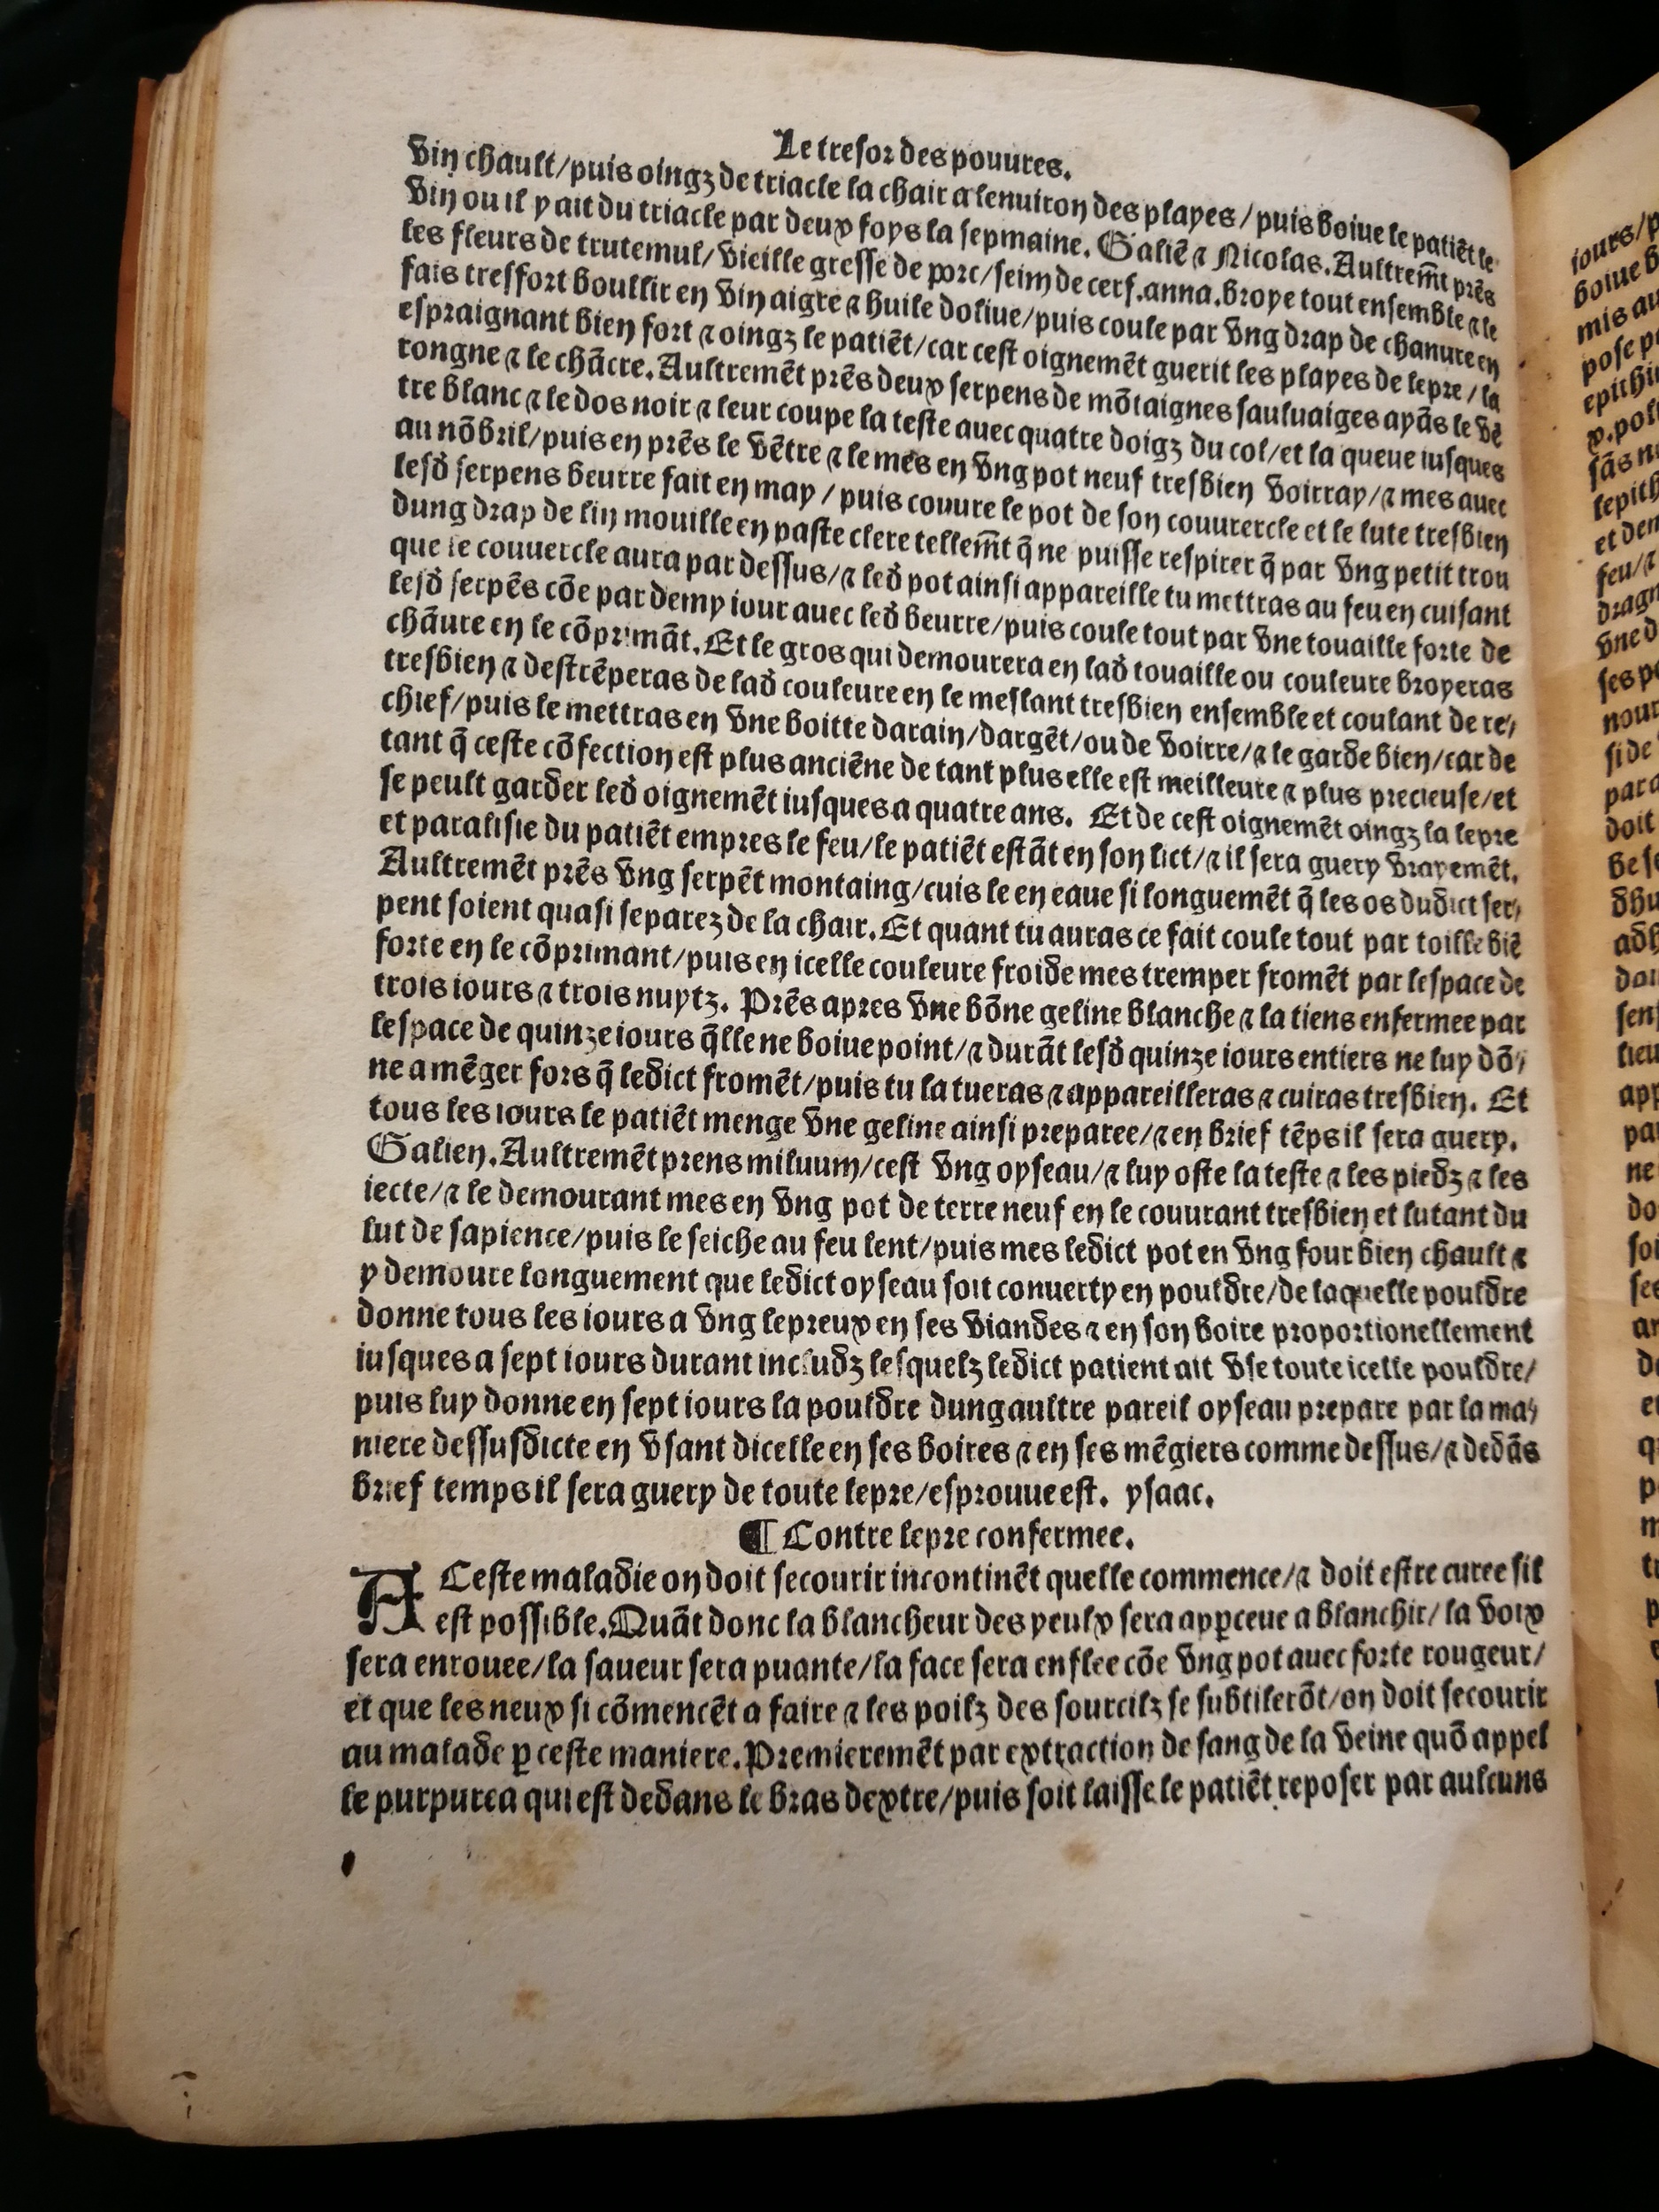 Le tresor des pouures.
vin chault/puis oingz de triacle la chair a lenuiron des playes/puis boiue le patiẽt le
vin ou il y ait du triacle par deux foys la sepmaine. Galiẽ ⁊ Nicolas. Aultrem̃t prẽs
les fleurs de trutemul/vieille gresse de porc/seim de cerf.anna.broye tout ensemble ⁊ le
fais tresfort boullir en vin aigre ⁊ huile doliue/puis coule par vng drap de chanure en
espraignant bien fort ⁊ oingz le patiẽt/car cest oignemẽt guerit les playes de lepre/la
rongne ⁊ le chãcre. Aultremẽt prẽs deux serpens de mõtaignes sauluaiges ayãs le vẽ
tre blanc ⁊ le dos noir ⁊ leur coupe la teste auec quatre doigz du col/et la queue iusques
au nõbril/puis en prẽs le vẽtre ⁊ le mes en vng pot neuf tresbien voirray/⁊ mes auec
lesd̕ serpens beurre fait en may/puis couure le pot de son couuercle et le lute tresbien
dung drap de lin mouille en paste clere tellem̃t q̃ ne puisse respirer q̃ par vng petit trou
que le couuercle aura par dessus/⁊ led̕ pot ainsi appareille tu mettras au feu en cuisant
lesd̕ serpẽs cõe par demy iour auec led̕ beurre/puis coule tout par vne touaille forte de
chãure en le cõprimãt. Et le gros qui demourera en lad̕ touaille ou couleure broyeras
tresbien ⁊ destrẽperas de lad̕ couleure en le meslant tresbien ensemble et coulant de re⸗
chief/puis le mettras en vne boitte darain/dargẽt/ou de voirre/⁊ le garde bien/car de
tant q̃ ceste cõfection est plus anciẽne de tant plus elle est meilleure ⁊ plus precieuse/et
se peult garder led̕ oignemẽt iusques a quatre ans. Et de cest oignemẽt oingz la lepre
et paralisie du patiẽt empres le feu/le patiẽt estãt en son lict/⁊ il sera guery vrayemẽt.
Aultremẽt prẽs vng serpẽt montaing/cuis le en eaue si longuemẽt q̃ les os dudict ser⸗
pent soient quasi separez de la chair. Et quant tu auras ce fait coule tout par toille biẽ
forte en le cõprimant/puis en icelle couleure froide mes tremper fromẽt par lespace de
trois iours ⁊ trois nuytz. Prẽs apres vne bõne geline blanche ⁊ la tiens enfermee par
lespace de quinze iours q̃lle ne boiue point/⁊ durãt lesd̕ quinze iours entiers ne luy dõ⸗
ne a mẽger fors q̃ ledict fromẽt/puis tu la tueras ⁊ appareilleras ⁊ cuiras tresbien. Et
tous les iours le patiẽt menge vne geline ainsi preparee/⁊ en brief tẽps il sera guery.
Galien. Aultremẽt prens miluum/cest vng oyseau/⁊ luy oste la teste ⁊ les piedz ⁊ les
iecte/⁊ le demourant mes en vng pot de terre neuf en le couurant tresbien et lutant du
lut de sapience/puis le seiche au feu lent/puis mes ledict pot en vng four bien chault ⁊
y demoure longuement que ledict oyseau soit conuerty en pouldre/de laquelle pouldre
donne tous les iours a vng lepreux en ses viandes ⁊ en son boire proportionellement
iusques a sept iours durant includz lesquelz ledict patient ait vse toute icelle pouldre/
puis luy donne en sept iours la pouldre dung aultre pareil oyseau prepare par la ma⸗
niere dessusdicte en vsant dicelle en ses boires ⁊ en ses mẽgiers comme dessus/⁊ dedãs
brief temps il sera guery de toute lepre/esprouue est. ysaac.
¶ Contre lepre confermee.
A Ceste maladie on doit secourir incontinẽt quelle commence/⁊ doit estre curee sil
est possible. Quãt donc la blancheur des yeulx sera apꝑceue a blanchir/la voix
sera enrouee/la saueur sera puante/la face sera enflee cõe vng pot auec forte rougeur/
et que les neux si cõmencẽt a faire ⁊ les poilz des sourcilz se subtilerõt/on doit secourir
au malade ꝑ ceste maniere. Premieremẽt par extraction de sang de la veine quõ appel
le purpurea qui est dedans le bras dextre/puis soit laisse le patiẽt reposer par aulcuns